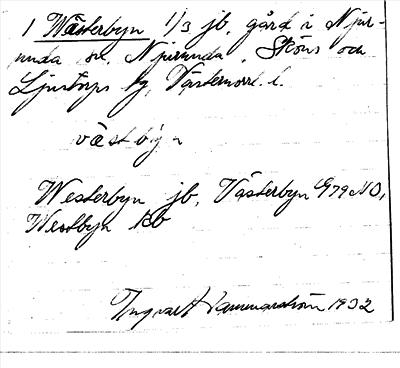 1 Västerbyn 1/3 jb, gård i Njur-
unda sn, Njurunda, Sköns och
Ljustorps tg, Västernorrl. l.
västbyn
Westerbyn jb, Västerbyn G79 NO,
Westbyn kb
Ingvart Hammarström 1932